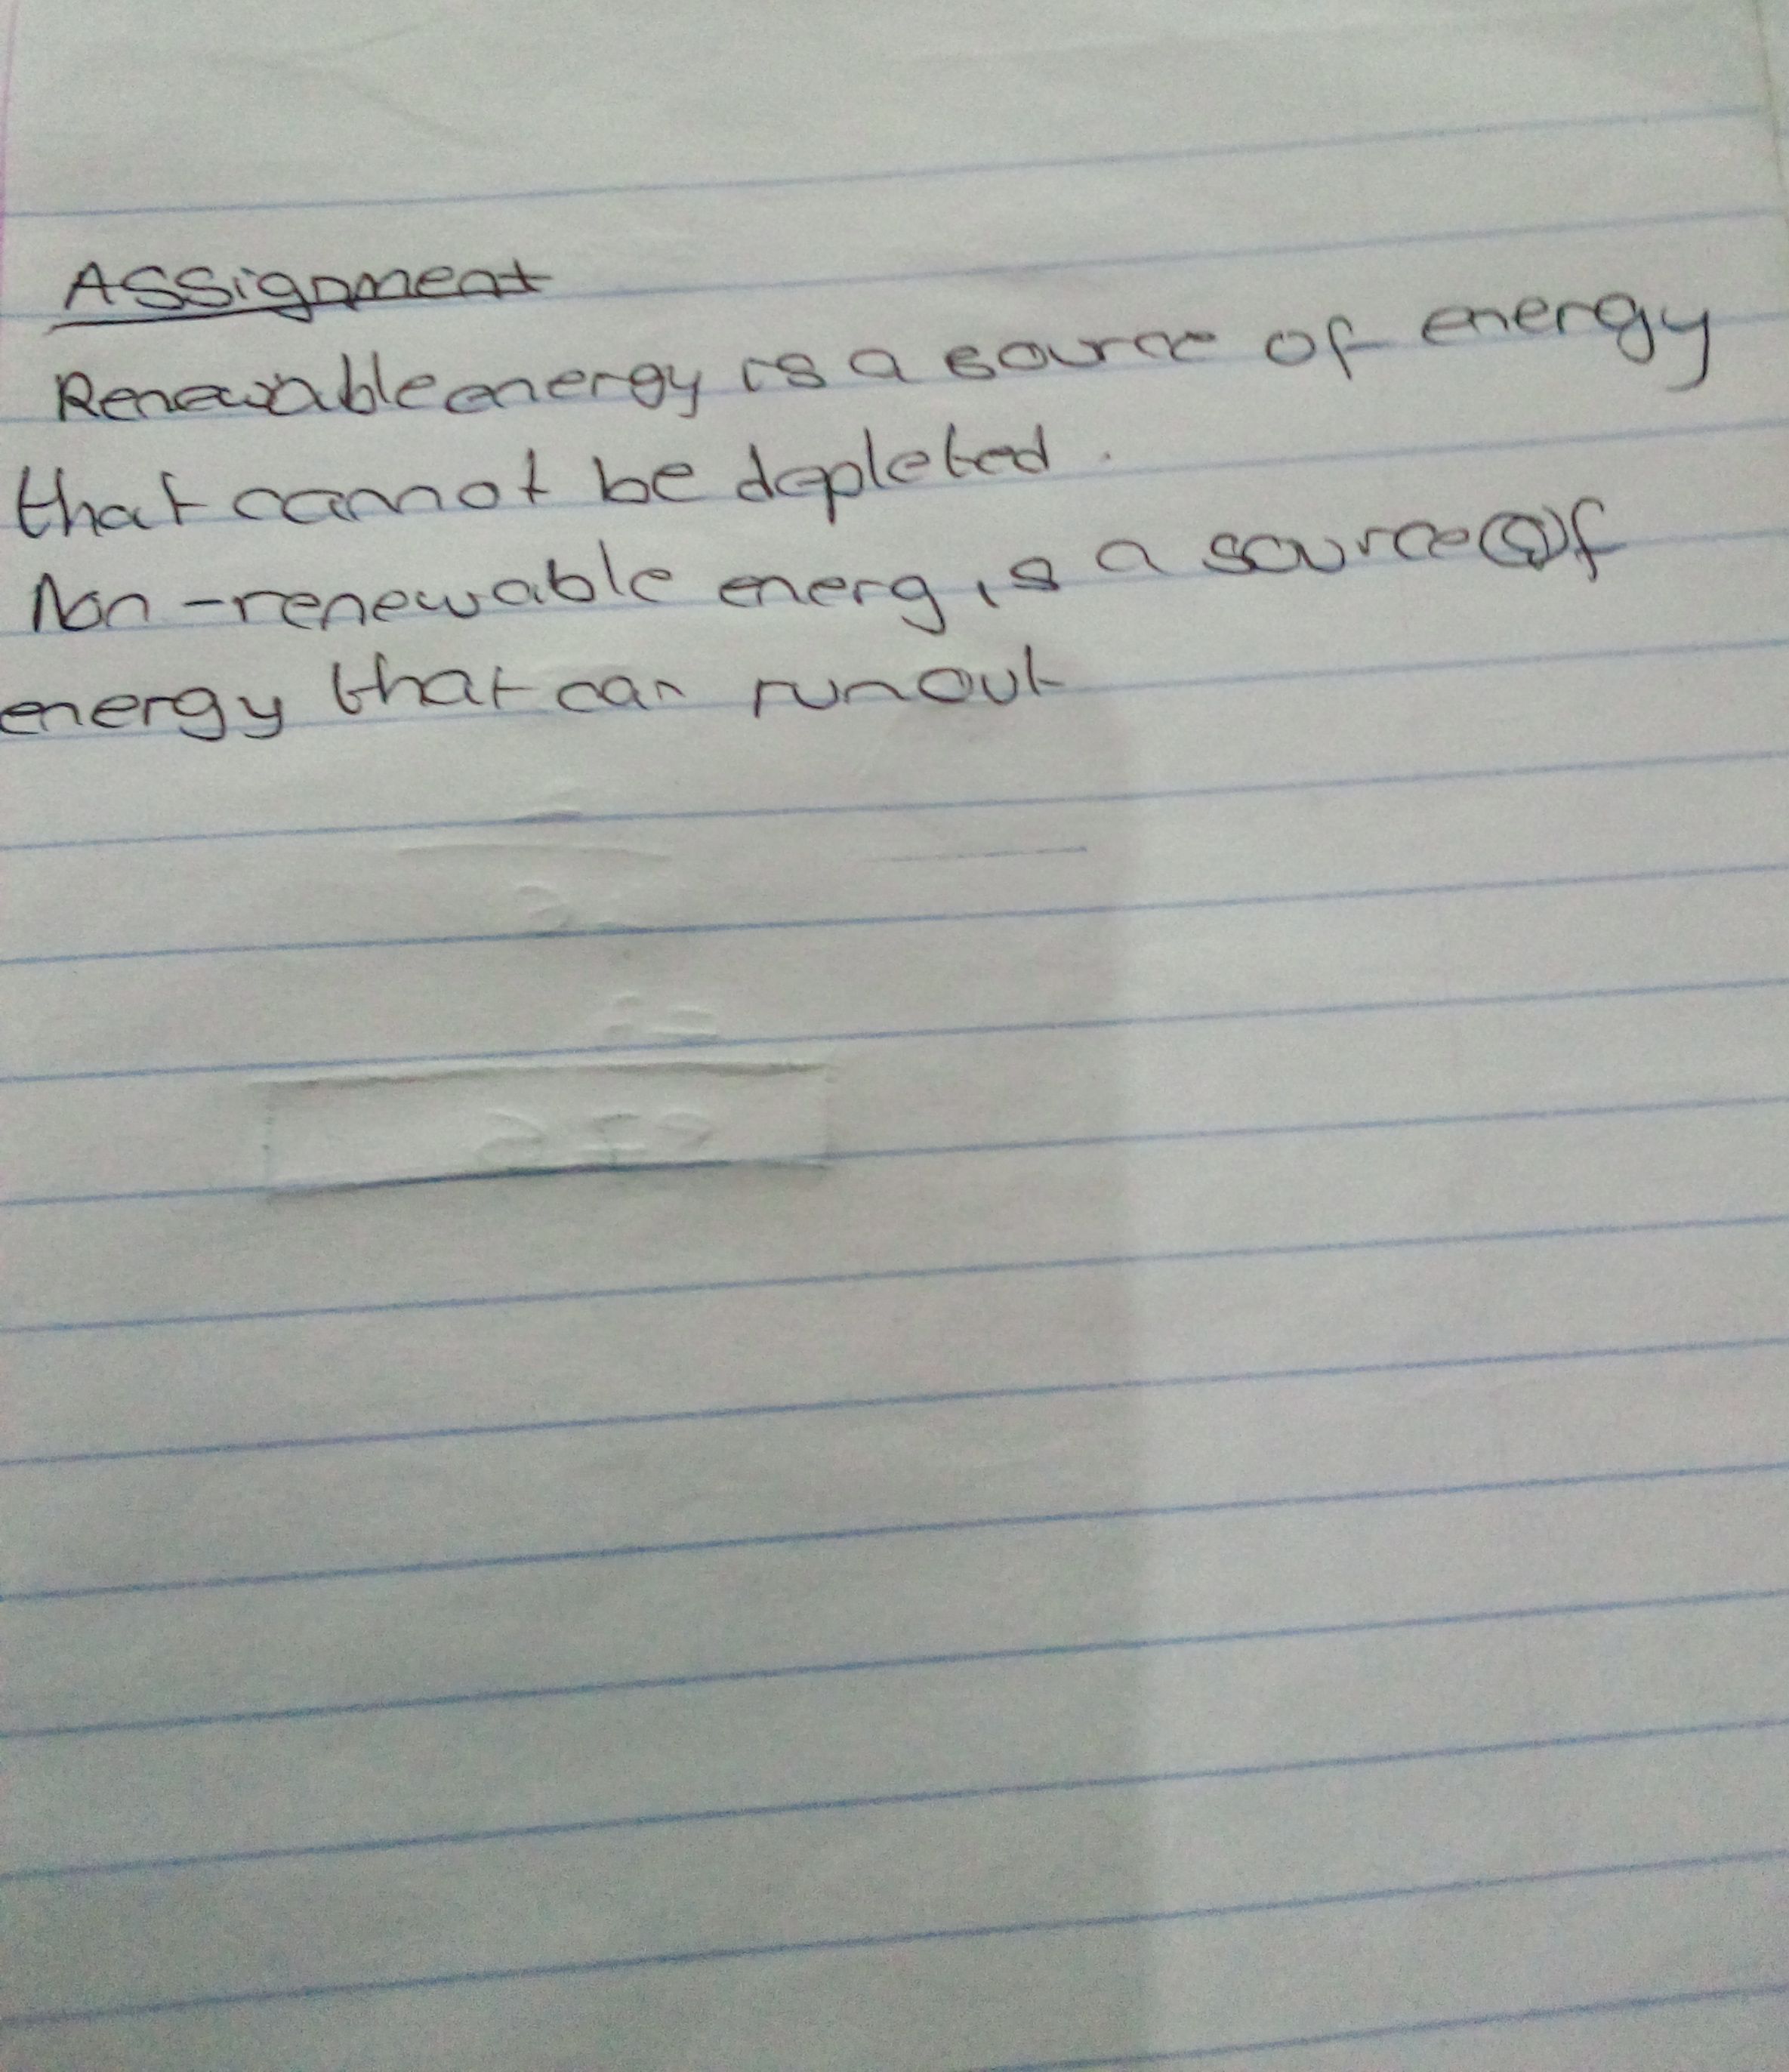 Assignment
Renewable energy is a source of energy
that cannot be depleted.
Non-renewable energ is a source of
energy that can run out